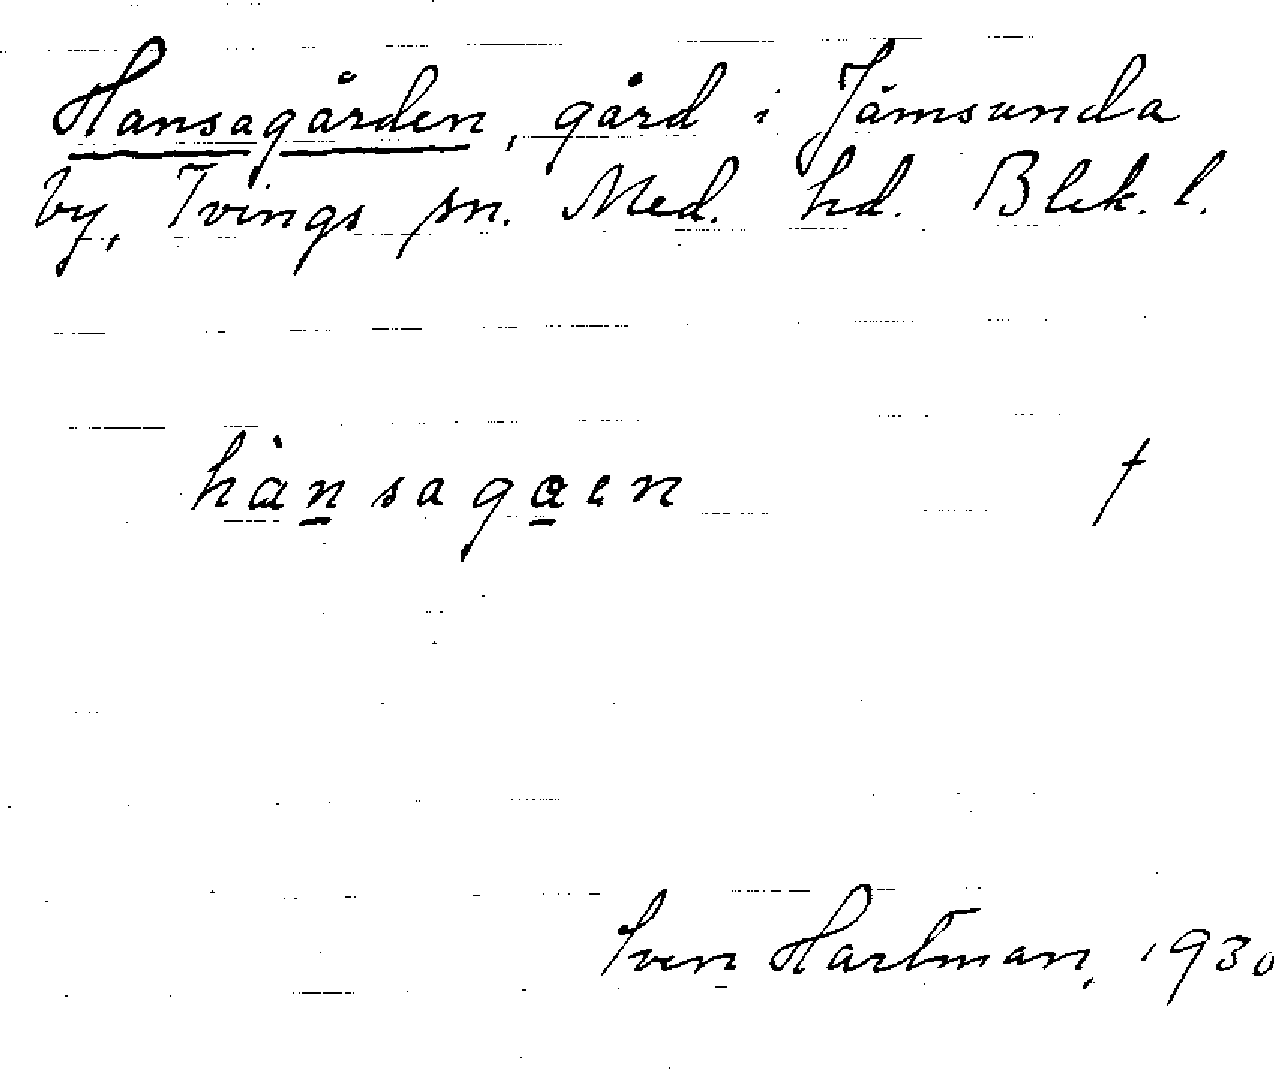 Hansagården, gård i Jämsunda
by, Tvings sn. Med. hd. Blek. l.
hànsagɑen †
Sven Hartman, 1930